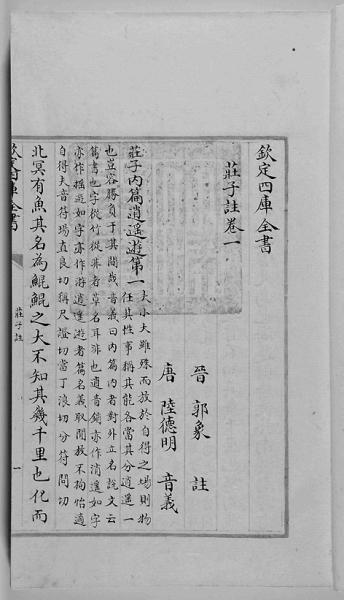 欽定四庫全書
莊子註卷一
晉 郭象 註
唐 陸德明 音義
莊子內篇逍遥遊第一
夫小大雖殊而放於自得之場則物
任其性事稱其能各當其分逍遥一
也豈容勝負于其間哉音義曰內篇內者對外立名說文云
篇書也字從竹從艸者草名耳非也逍音銷亦作消遥如字
亦作揺遊如字亦作游逍遥遊者篇名義取閒放不拘怡適
自得夫音符場直良切稱尺證切當丁浪切分符問切
北冥有魚其名為鯤鯤之大不知其幾千里也化而
欽定四庫全書
莊子註
一